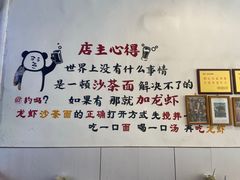 店主心得
世界上没有什么事情
是一顿沙茶面解决不了的
@约吗?
如果有那就加龙虾
龙虾沙茶面的正确打开方式先搅拌
吃一口面喝一口汤再吃龙虾